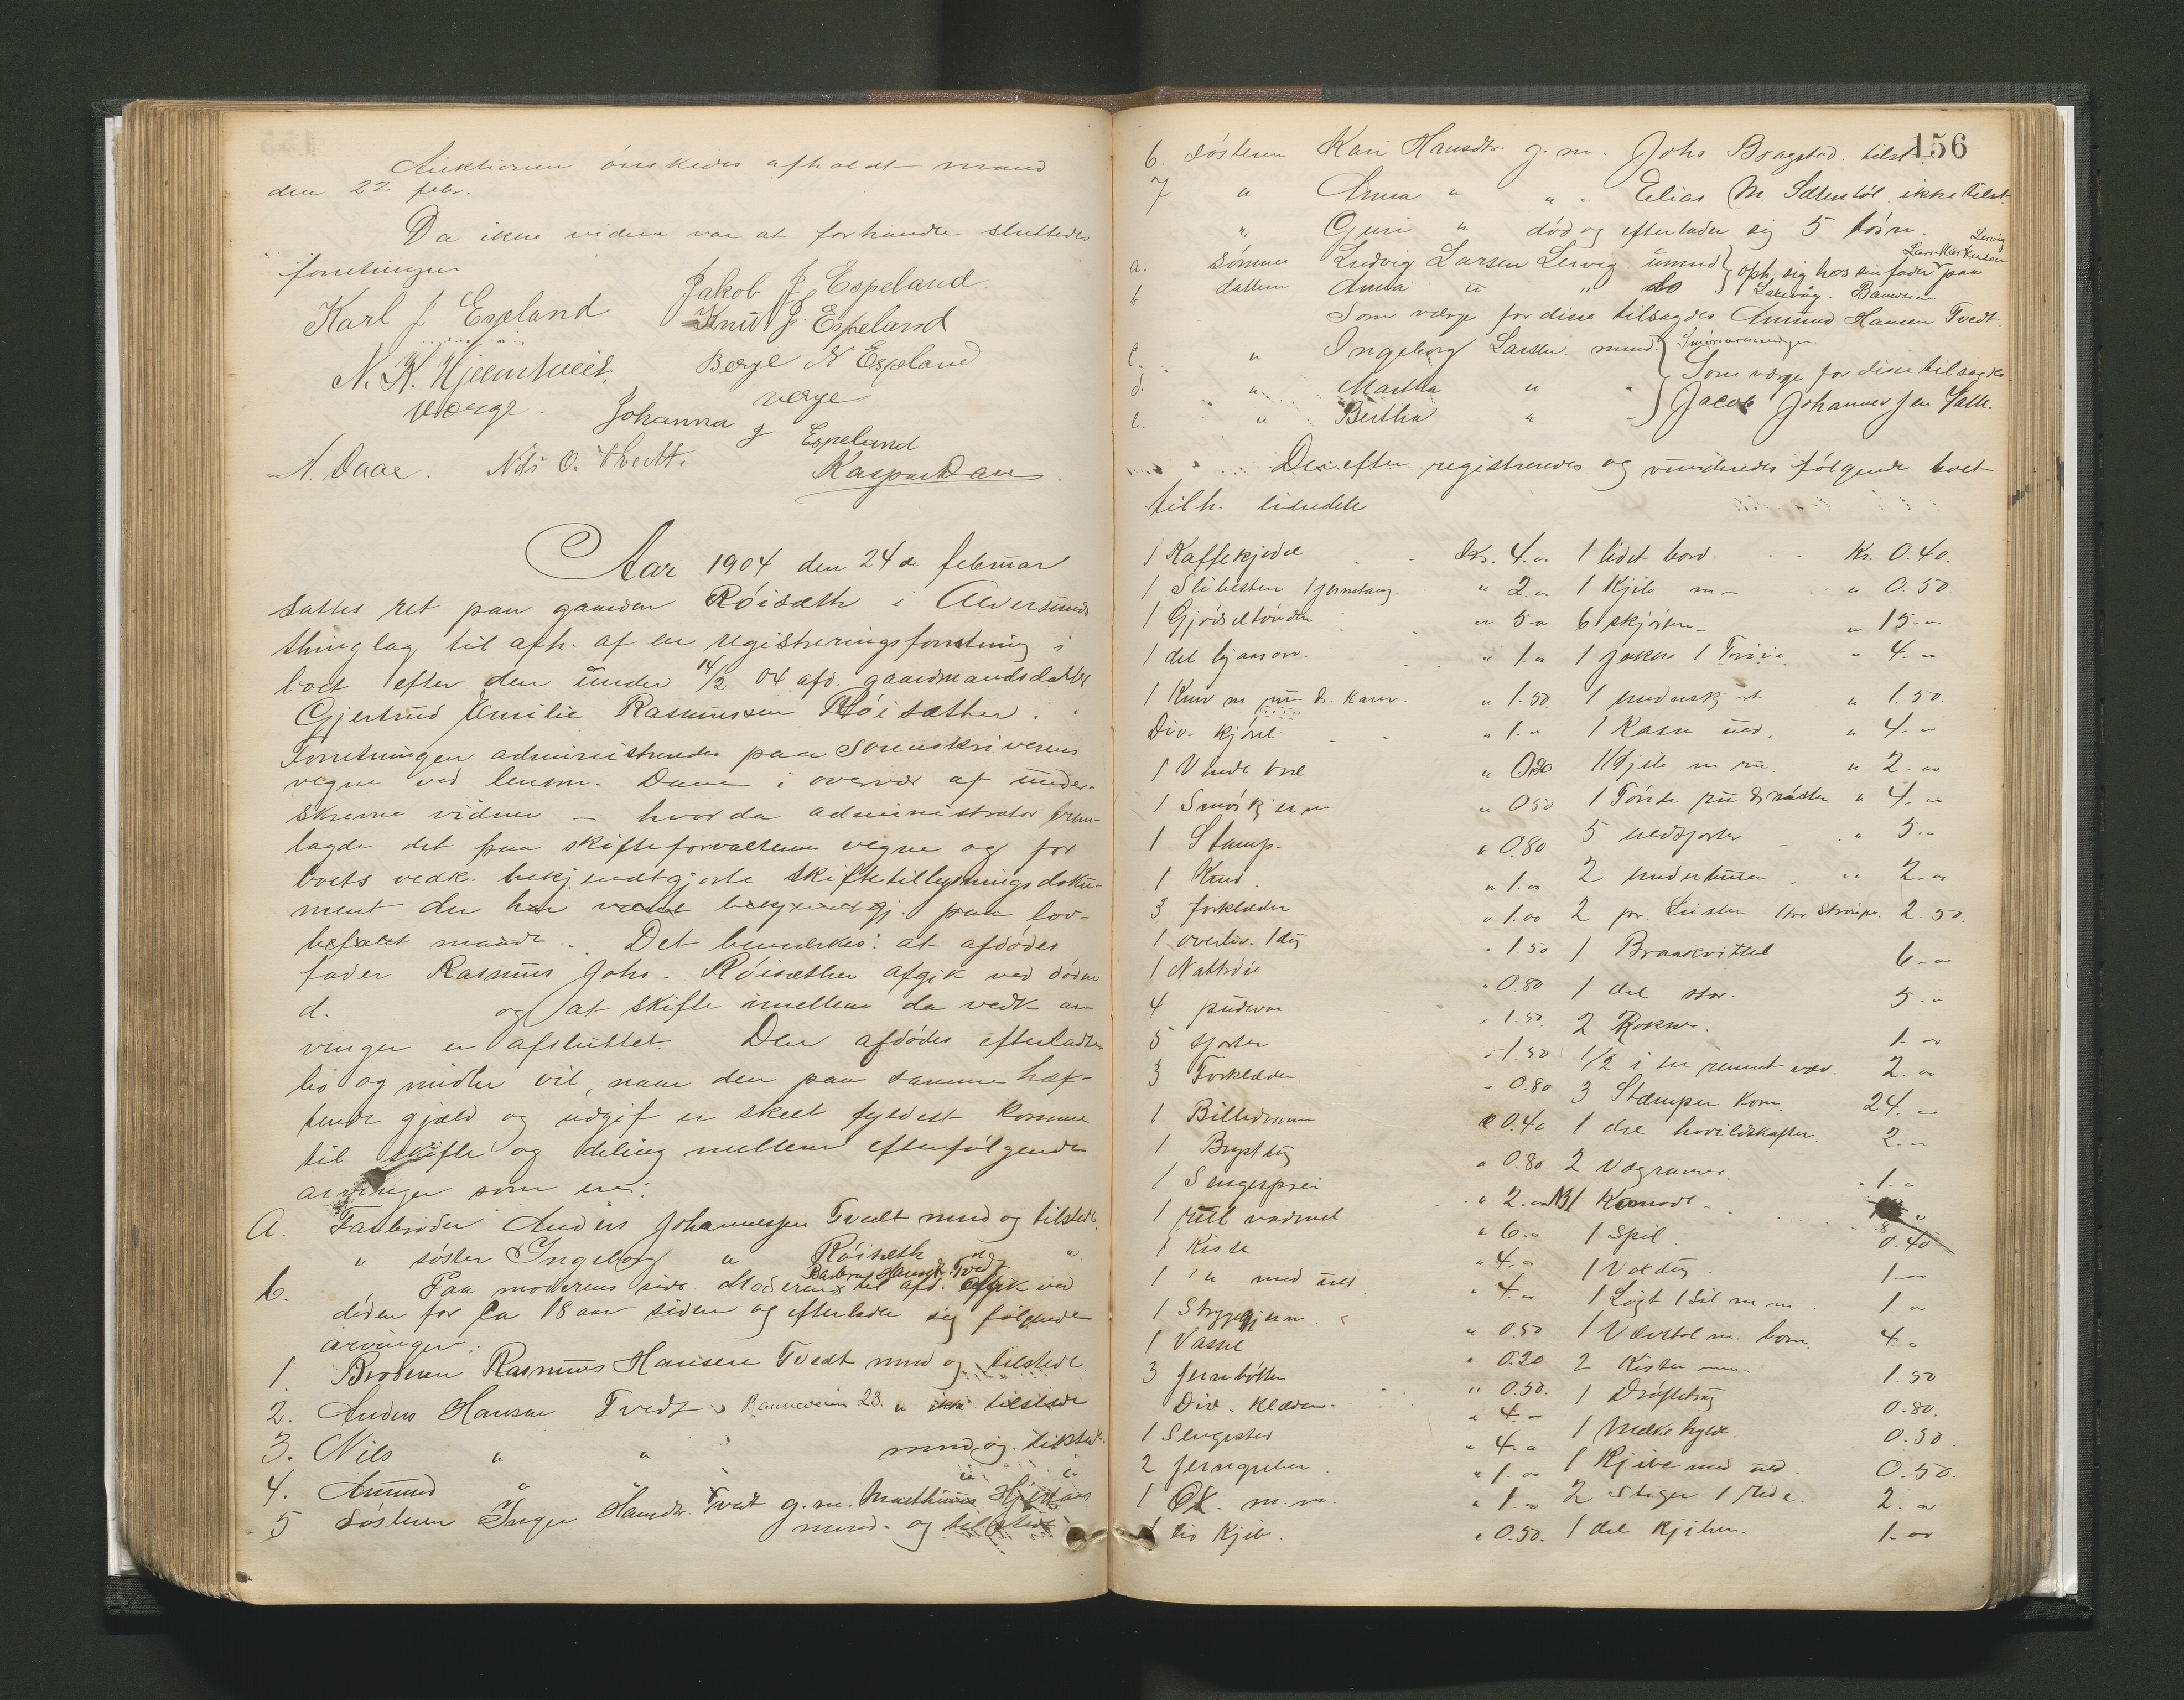 Auktionen ónskedes afholdt mand
den 22 febr.
Da ikke videre var at forhandle sluttedes
forretningen
Karl J Espeland Jakob J Espeland
Knut J. Espeland
N. K. Hjelmtveit, Berge N Espeland
Værge. verge
Johanna J Espeland
A. Daae. Nils O. Thvedt. Kaspar Daae
Aar 1904 den 24de februar
sattes ret paa gaarden Róisæth i Alversunds
thinglag til afh. af en registreringsforretning i
boet efter den under 14/2 04 afd. gaardmandsdatter
Gjertrud Emilie Rasmussen Róisæther.
Forretningen administreredes paa Sorenskriverens
vegne ved lensm. Daae i overvær af under-
skrevne vidner – hvorda administrator frem-
lagde det paa skifteforvalterens vegne og for
boets vedk. bekjendtgjorte skiftetillysningsdoku-
ment der har været bekjendtgj. paa lov-
befalet maade. Det bemærkes: at afdódes
fader Rasmus Johs. Róisæther afgik ved dóden
d. og at skifte imellem de vedk. ar-
vinger er afsluttet. Den afdódes efterladte
bo og midler vil, naar den paa samme hæf-
tende gjæld og udgift er skeet fyldest komme
til skifte og deling mellem efterfólgende
arvinger som er:
A. Farbroder Anders Johannessen Tvedt mnd og tilstede.
" sóster Ingeborg " Róisæth " "
b. Paa moderens side. Moderen Barbra Hansdtr. Tvedt til afd. afgik ved
dóden for ca 18 aar siden og efterlader sig fólgende
arvinger:
1. Broderen Rasmus Hansen Tvedt mnd og tilstede
2. Anders Hansen Tvedt 23. " ikke tilstede
3. Nils " " mnd og tilstede.
4. Amund " " "
5 Sósteren Inger Hansdtr. Tvedt g.m. Mathias Hjertaas
mnd. og tilstede
156
6. sósteren Kari Hansdtr. g.m. Johs Bragstad. tilst.
7 " Anna " " " Elias M. Sætentól ikke tilst.
" Guri " dód og efterlader sig 5 bórn.
a. sónnen Ludvig Larsen Lervig umnd } oph. sig hos sin fader Lars Markusen Lervig paa
b datteren Anna " " do } Laxevåg.
Som værge for disse tilsagdes Amund Hansen Tvedt.
c. " Ingeborg Larsen mnd. }
d. " Martha " " } Som værge for disse tilsagdes
e. " Bertha " " } Jacob Johannessen
Derefter registreredes og vurderedes fólgende boet
tilh. eiendele
1 Kaffekjedel Kr. 4.00 1 lidet bord Kr. 0.40.
1 Slibesten 1 jernstang. " 2.00 1 Kjile m– " 0.50.
1 Gjódseltónde " 5.00 6 skjórter " 15.00
1 del " 1.00 1 jakke 1 Tróie " 4.00
1 Kniv m " 1.50. 1 underskjórt " 1.50.
Div. kjórel " 1.00 1 Kasse " 4.00
1 Vende " 0.80 1 Kjile m m. " 2.00
1 Smórkjerne " 0.50 1 Tónde " 4.00
1 Stamp. " 0.80 5 " 5.00
1 Knud. " 1.00 2 undertrúier " 2.00
3 forklæder " 1.00 2 par Lester 1 par strómper. 2.50.
1 overliv. 1 dug " 1.50 1 Braakvittel 6.00
1 Nattróie " 0.80 1 del 5.00
4 pudevar " 1.50. 2 Rokker. 1.00
5 sjorter " 1.50 1/2 i en væv. 2.00
3 Forklæder " 0.80 3 Stamper korn 24.00
1 Billedramme " 0.40 1 del 2.00
1 Brystdug " 0.80 2 Vægrammer. 1.00
1 Sengesprei " 2.00 1 Komode.
1 rull vadmel " 6.00 1 Spil. 0.40
1 Kiste " 4.00 1 Voxdug. 1.00
1 " med uld " 4.00 1 Lygt 1 Sil m m 1.00
1 Strygejern " 0.50 1 Vævstol m. bom 4.00
1 Vassel " 0.20 2 Kister m.m. 1.50
3 jernbótter " 0.50. 1 Dróftetrug 0.80.
Div. klæder. " 4.00 1 Melkehylde. 0.50
1 Sengested " 4.00 1 Kjibe med uld. 0.50.
2 jerngreber " 1.00 2 Stiger 1 slede. 2.00
1 Øx. m.m. " 1.00 1 del kjiber. 1.00
1 lid Kjib. " 0.50.